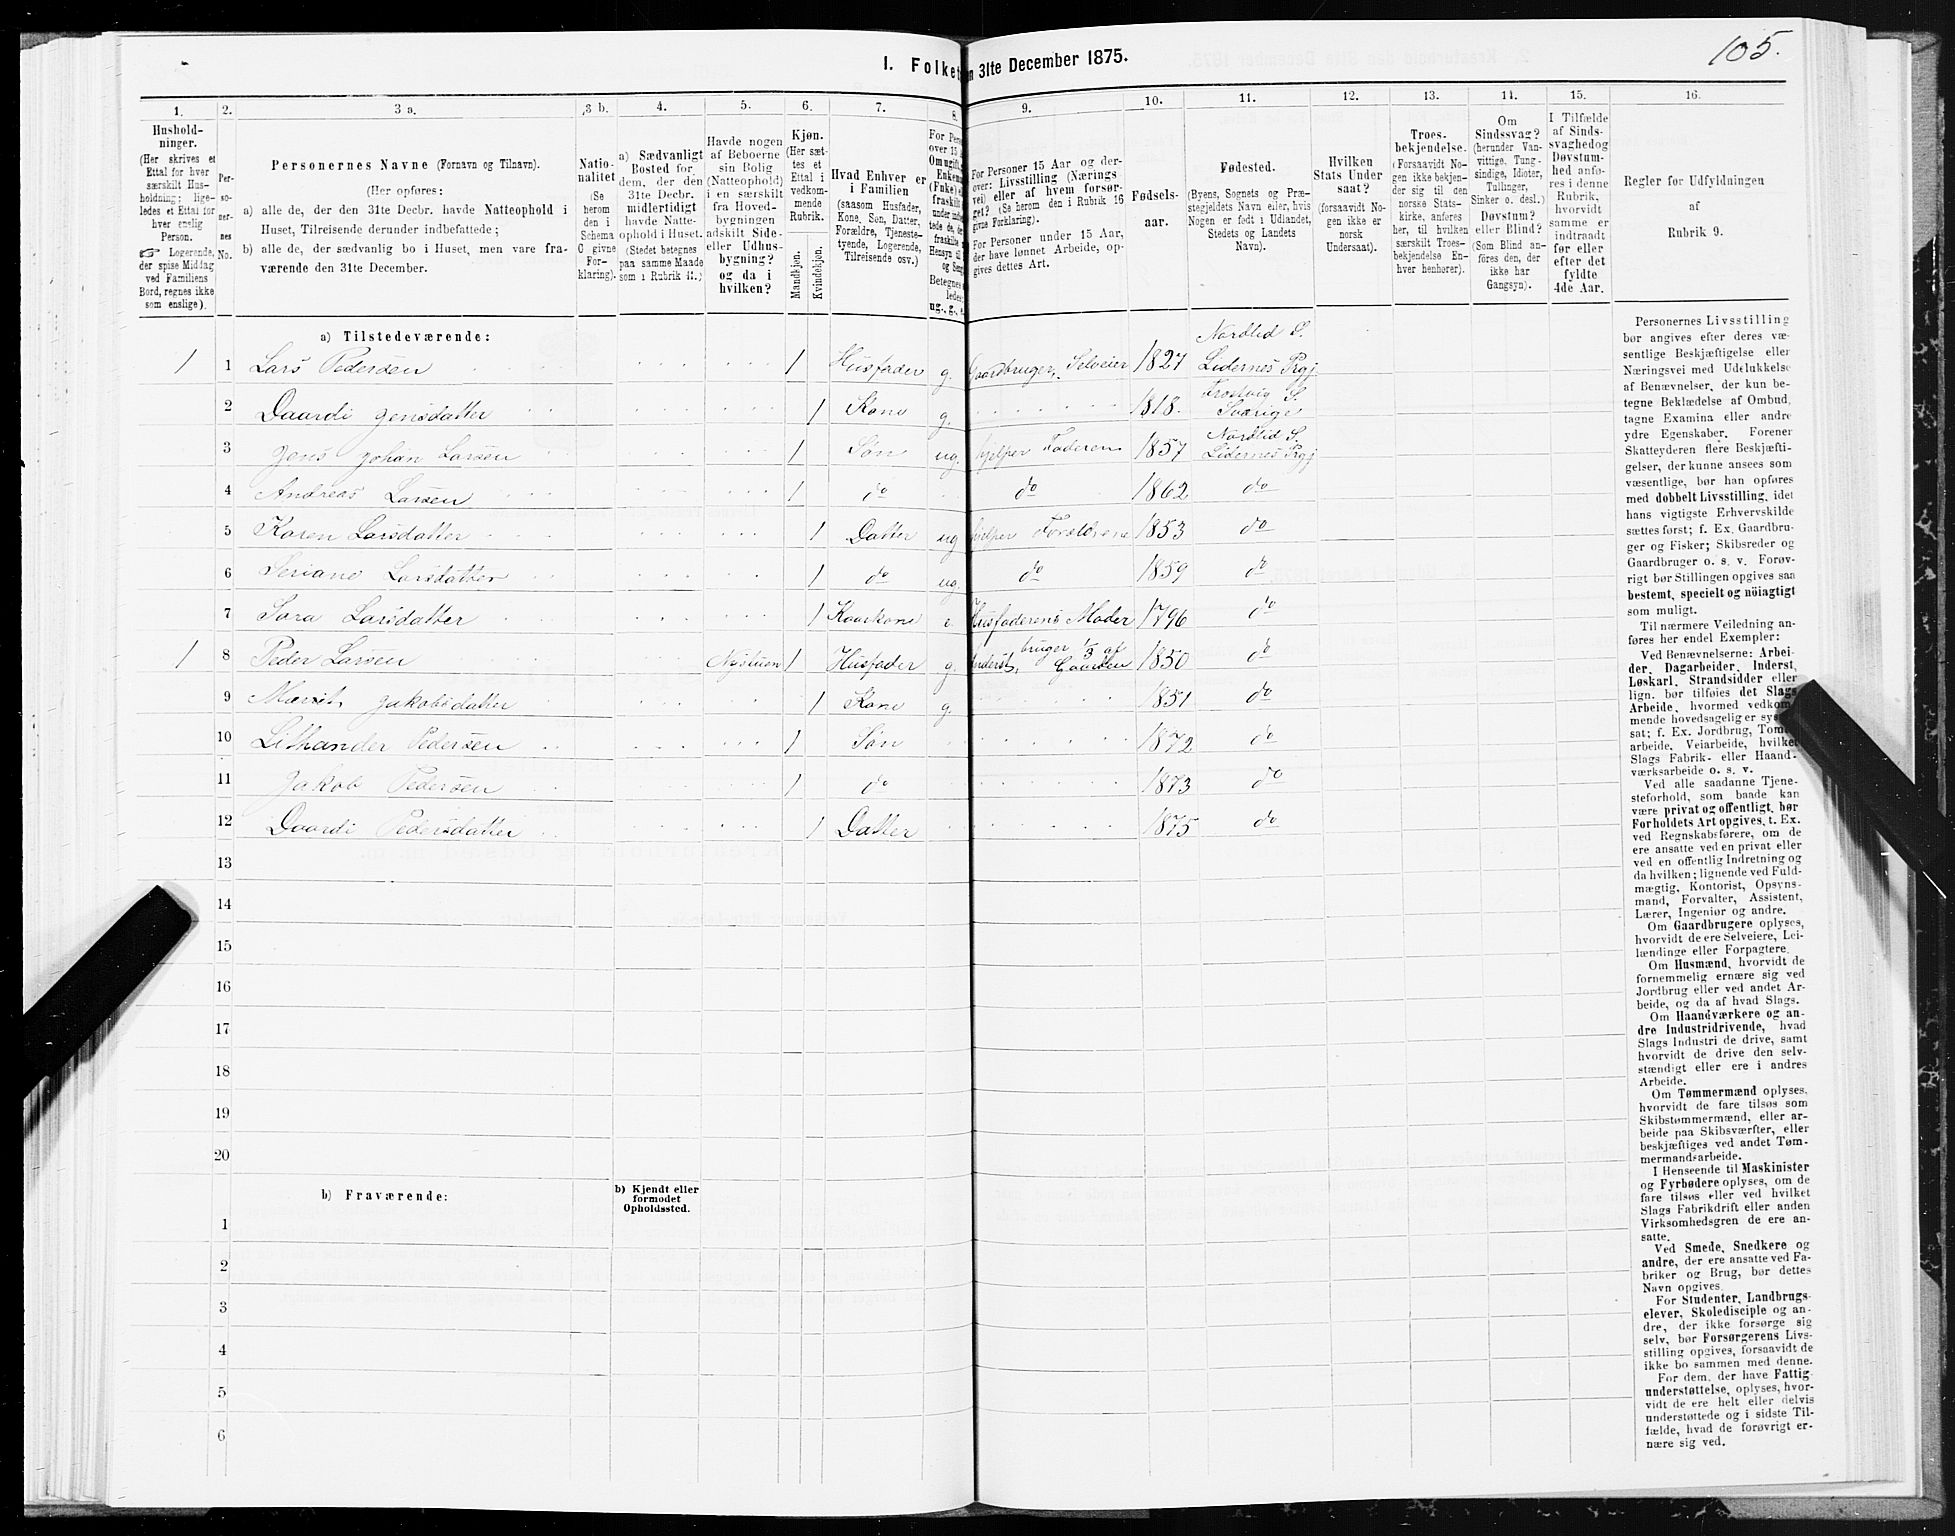 105.
I. Folket
n 31te December 1875.
1. 2. 3 a. 3 b. 4. 5. 6. 7. 8. 9. 10. 11. 12. 13. 14. 15. 16.
Hushold-
ninger.
(Her skrives et
Ettal for hver
særskilt Hus-
holdning; lige-
ledes et Ettal for
hver enslig
Person.
☞ Logerende,
der spise Middag
ved Familiens
Bord, regnes ikke
som enslige).
Per-
so-
ner-
nes
No.
Personernes Navne (Fornavn og Tilnavn).
(Her opføres:
a) alle de, der den 31te Decbr. havde Natteophold i
Huset, Tilreisende derunder indbefattede;
b) alle de, der sædvanlig bo i Huset, men vare fra-
værende den 31te December.
Natio-
nalitet
(Se
herom
den i
Schema
O givne
For-
klaring).
a) Sædvanligt
Bosted for
dem, der den
31te Decbr.
midlertidigt
havde Natte-
ophold i Huset.
(Stedet betegnes
paa samme Maade
som i Rubrik 11.)
Havde nogen
af Beboerne
sin Bolig
(Natteophold)
i en særskilt
fra Hoved-
bygningen
adskilt Side-
eller Udhus-
bygning?
og da i
hvilken?
Kjøn.
(Her sæt-
tes et
Ettal i
vedkom-
mende
Rubrik.
Mandkjøn.
Kvindekjøn.
Hvad Enhver er
i Familien
(saasom Husfader,
Kone, Søn, Datter,
Forældre, Tjeneste-
tyende, Logerende,
Tilreisende osv.)
For Pers
over 15 a
Om ugift,
Enkem
(Enke)
fraskilt
ug., g., e.
For Personer 15 Aar og der-
over: Livsstilling (Nærings-
vei) eller af hvem forsør-
get? (Se herom den i Rubrik 16
givne Forklaring).
For Personer under 15 Aar,
der have lønnet Arbeide, op-
gives dettes Art.
Fødsels-
aar.
Fødested.
(Byens, Sognets og Præ-
stegjeldets Navn eller, hvis
Nogen er født i Udlandet,
Stedets og Landets
Navn).
Hvilken
Stats Under
saat?
(forsaavidt No-
gen ikke er
norsk
Undersaat).
Troes-
bekjendelse.
(Forsaavidt No-
gen ikke bekjen-
der sig til den
norske Stats-
kirke, anføres
her, til hvilken
særskilt Troes-
bekjendelse En-
hver henhører).
Om
Sindssvag?
(herunder Van-
vittige, Tung-
sindige, Idioter,
Tullinger,
Sinker o. desl.)
Døvstum?
eller Blind?
(Som Blind an-
føres den, der
ikke har
Gangsyn).
I Tilfælde
af Sinds-
svaghed og
Døvstum-
hed anfø-
res i denne
Rubrik,
hvorvidt
samme er
indtraadt
før eller
efter det
fyldte
4de Aar.
Regler for Udfyldningen
af
Rubrik 9.
a) Tilstedeværende:
1 1 Lars Pedersen 1 Husfader g. Gaardbruger, Selveier 1827 Nordlid S. Lidernes Prgj
2 Daardi Jensdatter 1 Kone g. 1818. Frostvig S. Sverige
3 Jens Johan Larsen 1 Søn ug. hjelper Faderen 1857 Nordlid S. Lidernes Prgj
4 Andreas Larsen 1 do do 1862 do
5 Karen Larsdatter 1 Datter ug hjelper Forældrene 1853 do
6 Seriane Larsdatter 1 do ug. do 1859 do
7 Sara Larsdatter 1 Kaarkone e. Husfaderens Moder 1796 do
1 8 Peder Larsen Nystuen 1 Husfader g. Inderst, bruger 1/3 af Gaarden 1850 do
9 Marit Jakobsdatter 1 Kone g. 1851 do
10 Lithander Pedersen 1 Søn 1872 do
11 Jakob Pedersen 1 do 1873 do
12 Daardi Pedersdatter 1 Datter 1875 do
13
14
15
16
17
18
19
20
b) Fraværende:
b) Kjendt eller
formodet
Opholdssted.
1
2
3
4
5
6
Personernes Livsstilling
bør angives efter deres væ-
sentlige Beskjæftigelse eller
Næringsvei med Udelukkelse
af Benævnelser, der kun be-
tegne Beklædelse af Ombud,
tagne Examina eller andre
ydre Egenskaber. Forener
Skatteyderen flere Beskjæfti-
gelser, der kunne ansees som
væsentlige, bør han opføres
med dobbelt Livsstilling, idet
hans vigtigste Erhvervskilde
sættes først; f. Ex. Gaardbru-
ger og Fisker; Skibsreder og
Gaardbruger o. s. v. Forøv-
rigt bør Stillingen opgives saa
bestemt, specielt og nöiagtigt
som muligt.
Til nærmere Veiledning an-
føres her endel Exempler:
Ved Benævnelserne: Arbei-
der, Dagarbeider, Inderst,
Løskarl, Strandsidder eller
lign. bør tilføies det Slags
Arbeide, hvormed vedkom-
mende hovedsagelig er sys
sat; f. Ex. Jordbrug, Tøm
arbeide, Veiarbeide, hvilket
Slags Fabrik- eller Haand-
værksarbeide o. s. v.
Ved alle saadanne Tjene-
steforhold, som baade kan
være privat og offentligt, bør
Forholdets Art opgives, t. Ex.
ved Regnskabsførere, om de
ere ansatte ved en privat eller
ved en offentlig Indretning og
da hvilken; lignende ved Fuld-
mægtig, Kontorist, Opsyns-
mand, Forvalter, Assistent,
Lærer, Ingeniør og andre.
Om Gaardbrugere oplyses,
hvorvidt de ere Selveiere, Lei-
lændinge eller Forpagtere.
Om Husmænd, hvorvidt de
fornemmelig ernære sig ved
Jordbrug eller ved andet Ar-
beide, og da af hvad Slags.
Om Haandværkere og an-
dre Industridrivende, hvad
Slags Industri de drive, samt
hvorvidt de drive den selv-
stændigt eller ere i andres
Arbeide.
Om Tømmermænd oplyses,
hvorvidt de fare tilsøs som
Skibstømmermænd, eller ar-
beide paa Skibsværfter, eller
beskjæftiges ved andet Tøm-
mermandsarbeide.
I Henseende til Maskinister
og Fyrbødere oplyses, om de
fare tilsøs eller ved hvilket
Slags Fabrikdrift eller anden
Virksomhedsgren de ere an-
satte.
Ved Smede, Snedkere og
andre, der ere ansatte ved Fa-
briker og Brug, bør dettes
Navn opgives.
For Studenter, Landbrugs-
elever, Skoledisciple og an-
dre, der ikke forsørge sig
selv, bør Forsørgerens Livs-
stilling opgives, forsaavidt de
ikke bo sammen med denne.
For dem, der have Fattig-
understøttelse, oplyses, hvor-
vidt de ere helt eller delvis
understøttede og i sidste Til-
fælde, hvad de forøvrigt er-
nære sig ved.